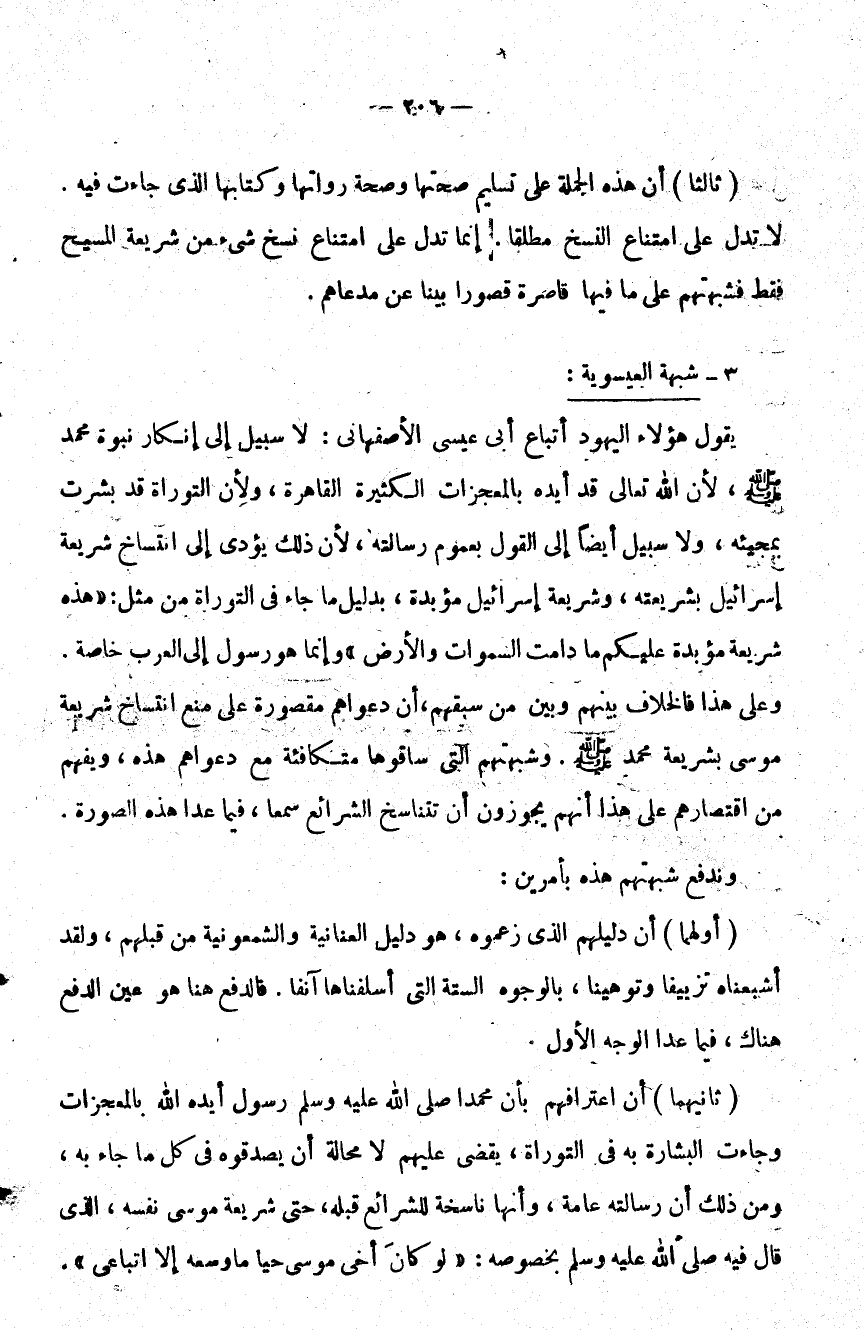 — ٢٠٦ —
( ثالثا ) أن هذه الجملة على تسليم صحتها وصحة رواتها وكتابها الذى جاءت فيه .
لا تدل على امتناع النسخ مطلقا . إنما تدل على امتناع نسخ شىء من شريعة المسيح
فقط فشبهتهم على ما فيها قاصرة قصورا بينا عن مدعاهم .
٣ ـ شبهة العيسوية :
يقول هؤلاء اليهود أتباع أبى عيسى الأصفهانى : لا سبيل إلى إنكار نبوة محمد
ﷺ ، لأن الله تعالى قد أيده بالمعجزات الكثيرة القاهرة ، ولأن التوراة قد بشرت
بمجيئه ، ولا سبيل أيضاً إلى القول بعموم رسالته ، لأن ذلك يؤدى إلى انتساخ شريعة
إسرائيل بشريعته ، وشريعة إسرائيل مؤبدة ، بدليل ما جاء فى التوراة من مثل: «هذه
شريعة مؤبدة عليكم ما دامت السموات والأرض » وإنما هو رسول إلى العرب خاصة .
وعلى هذا فالخلاف بينهم وبين من سبقهم، أن دعواهم مقصورة على منع انتساخ شريعة
موسى بشريعة محمد ﷺ . وشبهتهم التى ساقوها متكافئة مع دعواهم هذه ، ويفهم
من اقتصارهم على هذا أنهم يجوزون أن تتناسخ الشرائع سمعا ، فيما عدا هذه الصورة .
وندفع شبهتهم هذه بأمرين :
( أولهما ) أن دليلهم الذى زعموه ، هو دليل العنانية والشمعونية من قبلهم ، ولقد
أشبعناه تزييفا وتوهينا ، بالوجوه الستة التى أسلفناها آنفا . فالدفع هنا هو عين الدفع
هناك ، فيما عدا الوجه الأول .
( ثانيهما ) أن اعترافهم بأن محمدا صلى الله عليه وسلم رسول أيده الله بالمعجزات
وجاءت البشارة به فى التوراة ، يقضى عليهم لا محالة أن يصدقوه فى كل ما جاء به ،
ومن ذلك أن رسالته عامة ، وأنها ناسخة للشرائع قبله، حتى شريعة موسى نفسه ، الذى
قال فيه صلى الله عليه وسلم بخصوصه : « لو كان أخى موسى حيا ما وسعه إلا اتباعى » .